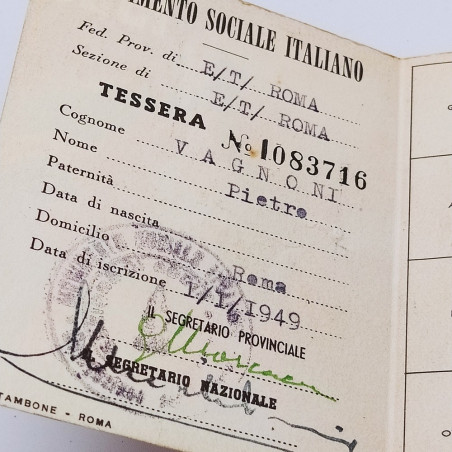 MENTO SOCIALE ITALIANO
Fed. Prov. di E/T/ ROMA
Sezione di E/T/ ROMA
TESSERA No 1083716
Cognome VAGNONI
Nome Pietro
Paternità
Data di nascita
Domicilio Roma
Data di iscrizione 1/1/1949
IL SEGRETARIO PROVINCIALE
IL SEGRETARIO NAZIONALE
TAMBONE - ROMA